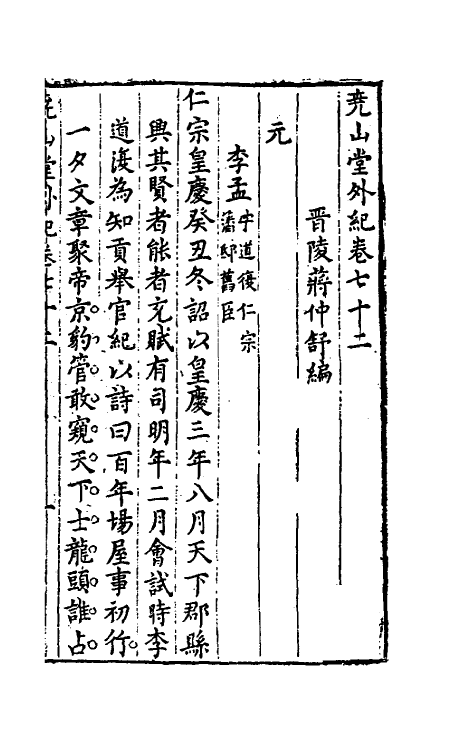 堯山堂外紀卷七十二
晉陵蔣仲舒編
元
李孟 字道復仁宗
潛邸舊臣
仁宗皇慶癸丑冬詔以皇慶三年八月天下郡縣
興其賢者能者充賦有司明年二月會試時李
道復為知貢舉官紀以詩曰百年場屋事初行
一夕文章聚帝京豹管敢窺天下士龍頭誰占
堯山堂外紀卷七十二 一